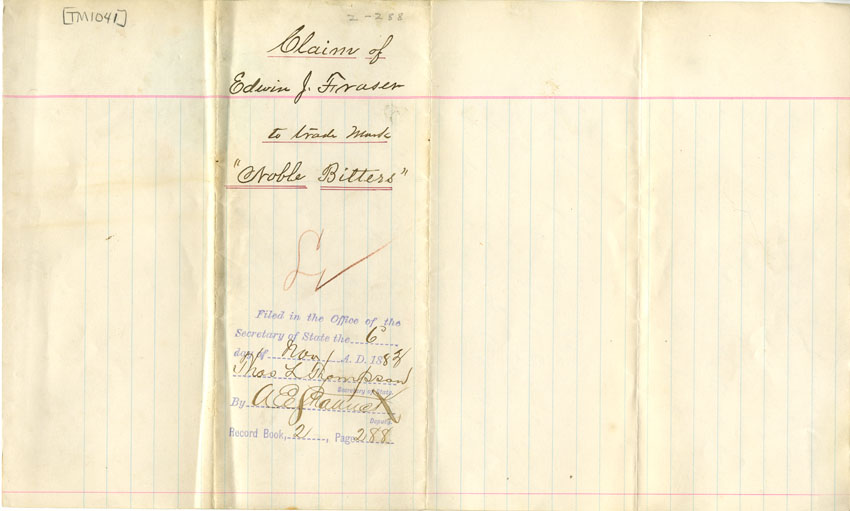 [TM1041]
2-288
Claim of
Edwin J. Fraser
to trade Mark
"Noble Bitters"
Filed in the Office of the
Secretary of State the 6
day of Nov A. D. 188
Thos L Thompson
Secretary of State.
By A E
Deputy.
Record Book, 2, Page 288